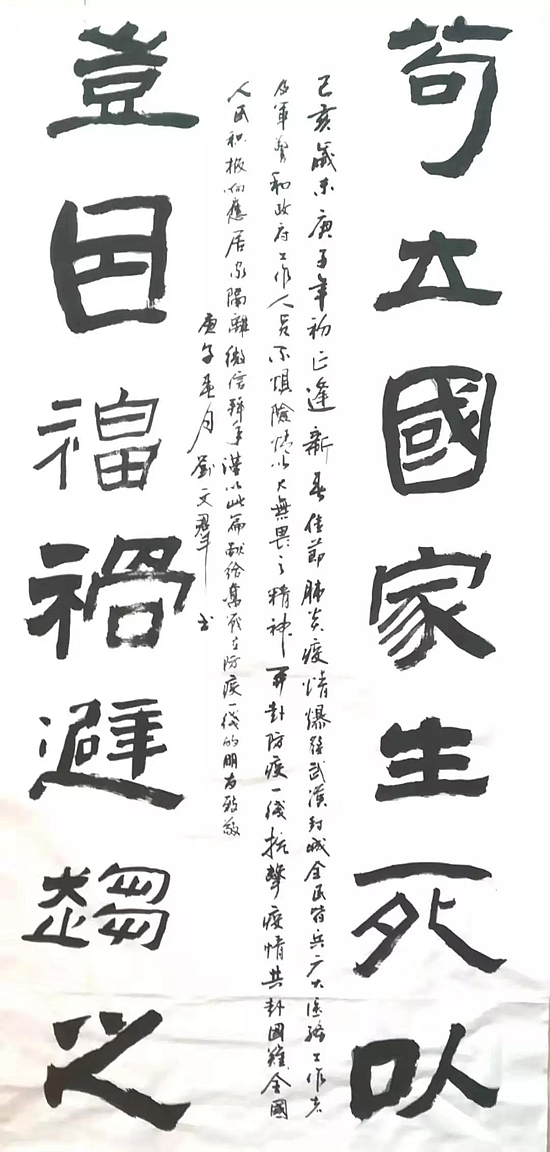 苟立國家生死以
己亥歲末庚子年初正逢新春佳節肺炎疫情爆發武漢封城全民皆兵广大医務工作者
及軍警和政府工作人员不惧險情以大無畏之精神面對防疫一线抗擊疫情共赴国難全國
人民积极响應居家隔離微信拜年谨以此篇献给奮战在防疫一线的朋友致敬
庚子春月劉文羣书
豈因福禍避趨之